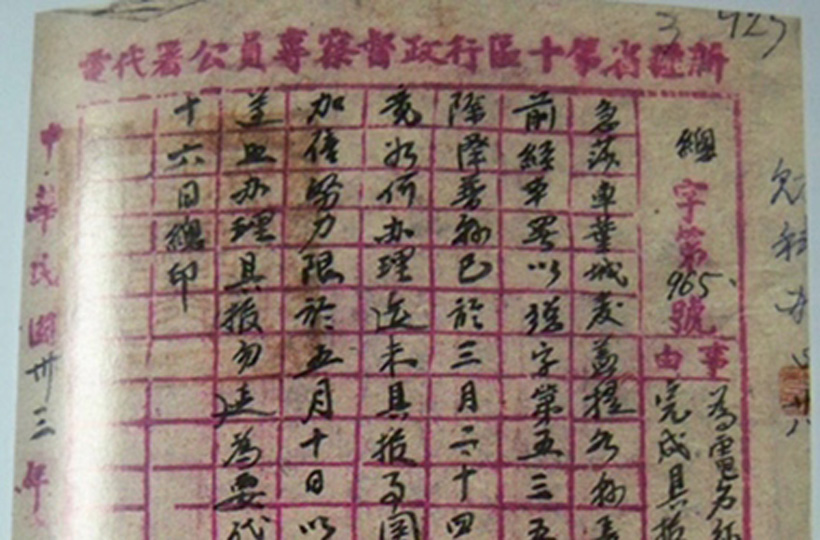 新疆省第十區行政督察專員公署代電
總字第965號
事由
為電各縣
完成具報
急莎車葉城麥蓋提各縣長
前經本署以總字第五三五
除澤普縣已於三月二十四
究如何办理迄未具报事関
加倍努力限於五月十日以
办理具报勿延為要代
十六日總印
中華民國卅三年